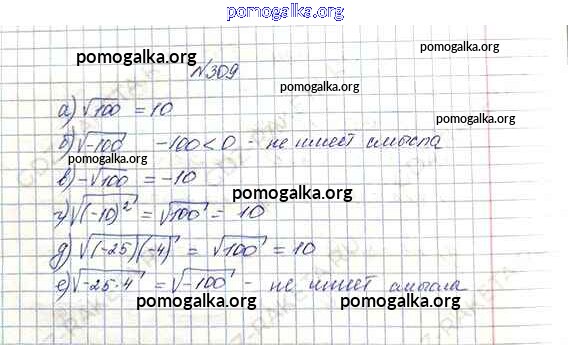 pomogalka.org
pomogalka.org pomogalka.org
№309
pomogalka.org
а) √100 = 10
б) √-100 -100 < 0 - не имеет смысла
pomogalka.org pomogalka.org
в) -√100 = -10
pomogalka.org
г) √(-10)² = √100 = 10
д) √(-25)(-4) = √100 = 10
е) √-25·4 = √-100 - не имеет смысла
pomogalka.org pomogalka.org